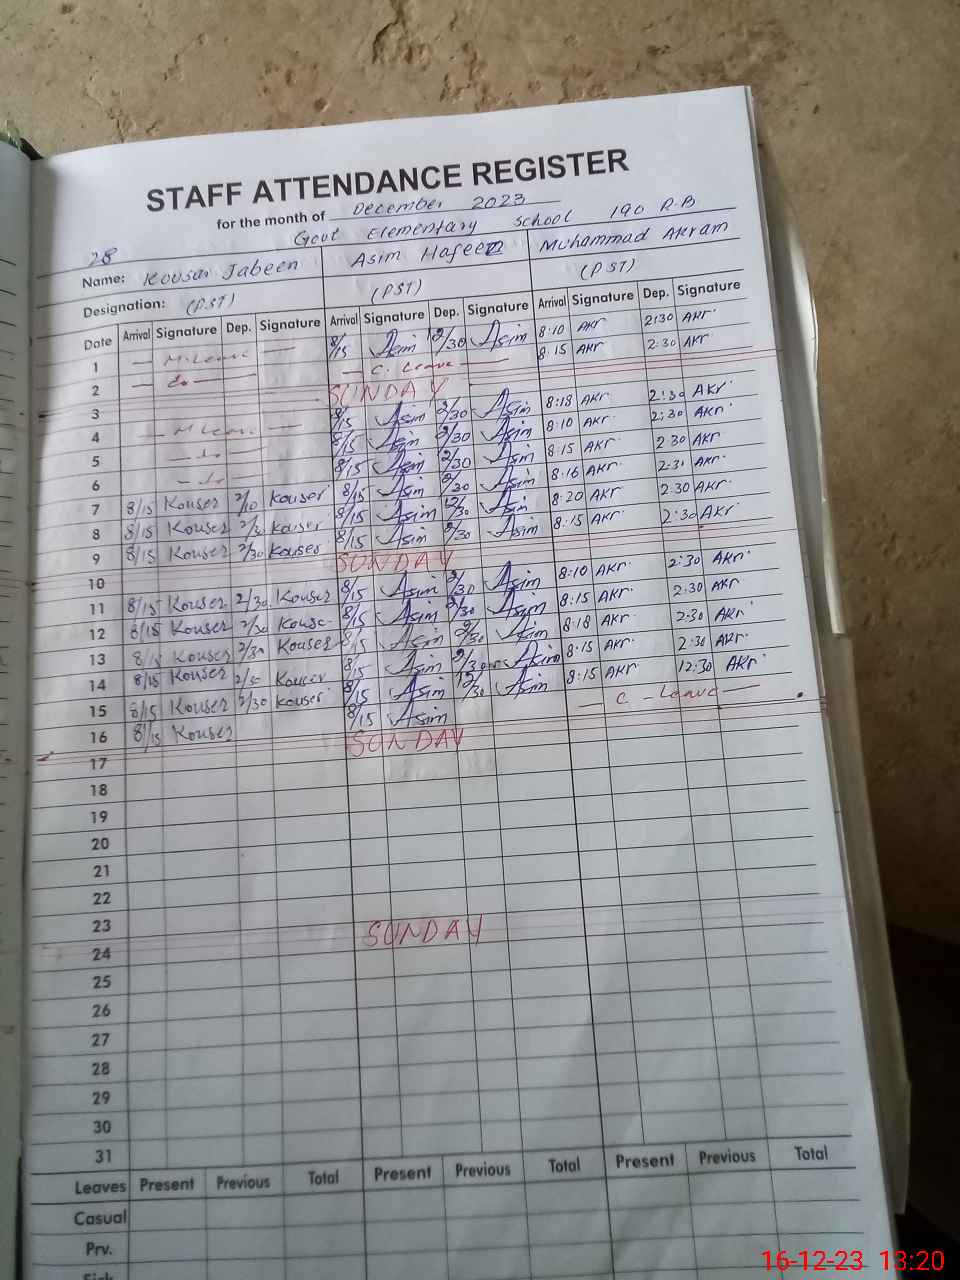 STAFF ATTENDANCE REGISTER
for the month of December 2023
28 Govt Elementary School 190 R.B
Name: Kousar Jabeen Asim Hafeez Muhammad Akram
Designation: (PST) (PST) (PST)
Date Arrival Signature Dep. Signature Arrival Signature Dep. Signature Arrival Signature Dep. Signature
1 — M. Leave — 8/15 Asim 12/30 Asim 8:10 AKr 2:30 AKr
2 — do — — C. Leave — 8:15 AKr 2:30 AKr
3 SUNDAY
4 — M Leave — 8/15 Asim 2/30 Asim 8:18 AKr 2:30 AKr
5 8/15 Asim 2/30 Asim 8:10 AKr 2:30 AKr
6 8/15 Asim 2/30 Asim 8:15 AKr 2 30 AKr
7 8/15 Kouser 2/10 Kouser 8/15 Asim 2/30 Asim 8:16 AKr 2:31 AKr
8 8/15 Kouser 2/3 Kouser 8/15 Asim 12/30 Asim 8:20 AKr 2.30 AKr
9 8/15 Kouser 2/30 Kouser 8/15 Asim 2/30 Asim 8:15 AKr 2:30 AKr
10 SUNDAY
11 8/15 Kouser 2/30 Kouser 8/15 Asim 2/30 Asim 8:10 AKr 2:30 AKr
12 8/15 Kouser 2/30 Kouse 8/15 Asim 2/30 Asim 8:15 AKr 2:30 AKr
13 8/15 Kouser 2/30 Kouser 8/15 Asim 2/30 Asim 8:18 AKr 2:30 AKr
14 8/15 Kouser 2/30 Kouser 8/15 Asim 2/30 Asim 8:15 AKr 2:30 AKr
15 8/15 Kouser 2/30 Kouser 8/15 Asim 12/30 Asim 8:15 AKr 12:30 AKr
16 8/15 Kouser 8/15 Asim — C - Leave —
17 SUNDAY
18
19
20
21
22
23
24 SUNDAY
25
26
27
28
29
30
31
Leaves Present Previous Total Present Previous Total Present Previous Total
Casual
Prv.
Sick
16-12-23 13:20